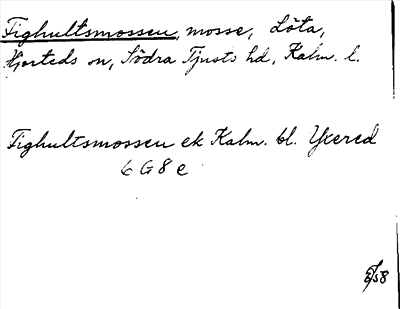 Fighultsmossen, mosse, Löta,
Hjorteds sn, Södra Tjusts hd, Kalm. l.
Fighultsmossen ek Kalm. bl. Yxered
6 G 8 e